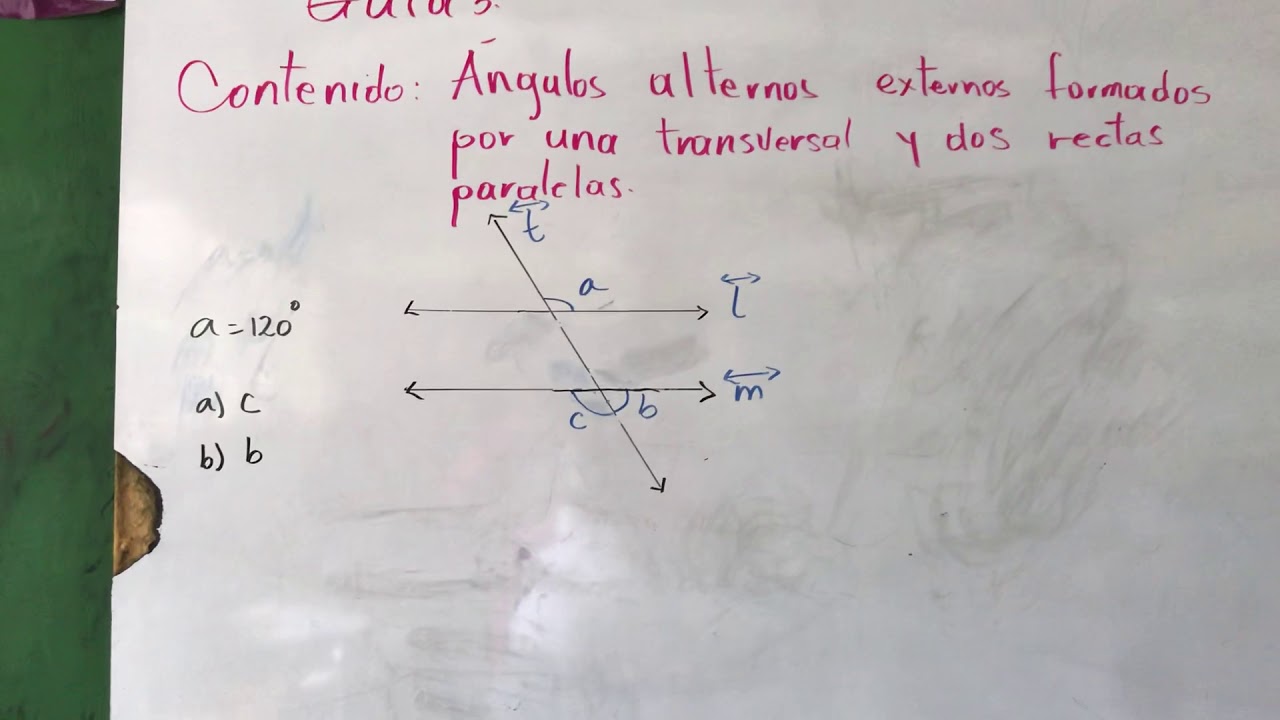 Guía 3.
Contenido: Ángulos alternos externos formados
por una transversal y dos rectas
paralelas.
t
a
l
a = 120°
m
a) c
c b
b) b